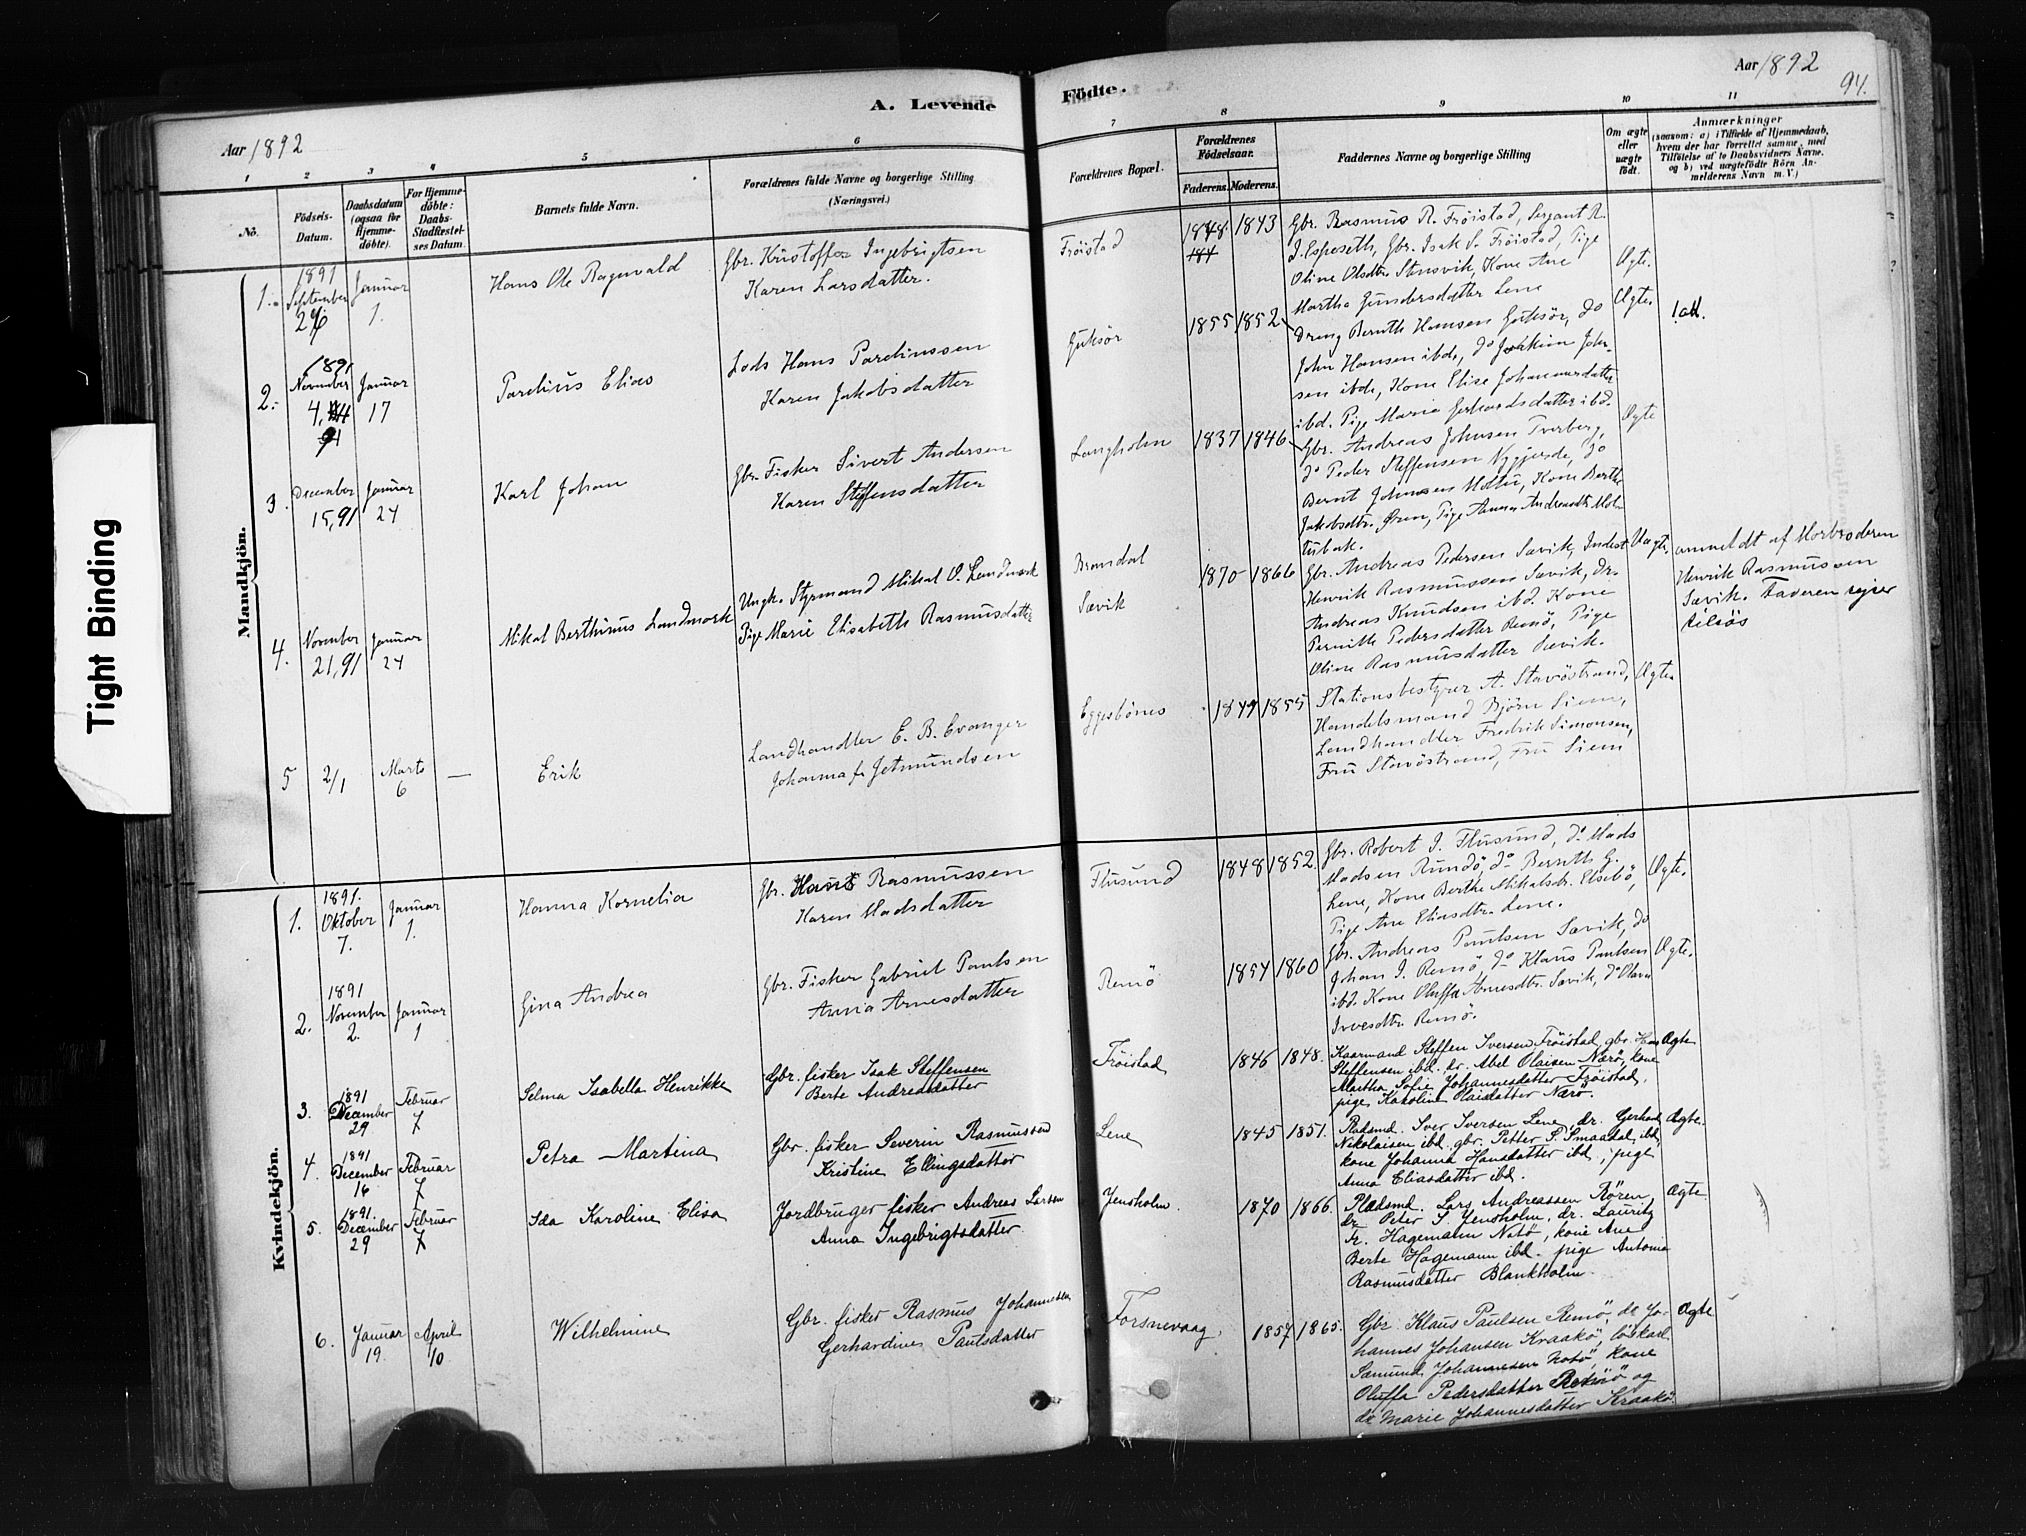 Tight Binding
A. Levende
Aar 1892
1 2 3 4 5 6
No.
Födsels-
Datum.
Daabsdatum
(ogsaa for
Hjemme-
döbte).
For Hjemme-
döbte:
Daabs-
Stadfæstel-
ses Datum.
Barnets fulde Navn.
Forældrenes fulde Navne og borgerlige Stilling
(Næringsvei.)
Mandkjön.
1.
1891
September
Januar
1.
Hans Ole Ragnvald
Gbr. Kristoffer Ingebrigtsen
Karen Larsdatter.
2.
1891
November
4,
Januar
17
Parelius Elias
Lods Hans Pareliussen
Karen Jakobsdatter
3.
December
15, 91
Januar
24
Karl Johan
Gbr. Fisker Sivert Andersen
Karen Steffensdatter
4.
November
21, 91
Januar
24
Mikal Berthinus Landmark
Ungk. Styrmand Mikal O. Landmark
Pige Marie Elisabeth Rasmusdatter
5
2/1
Marts
6
—
Erik
Landhandler E. B. Evanger
Johanna f. Jetmundsen
Kvindekjön.
1.
1891.
Oktober
7.
Januar
1.
Hanna Kornelia
Gbr. Hans Rasmussen
Karen Madsdatter
2.
1891
November
2.
Januar
1
Gina Andrea
Gbr. Fisker Gabriel Paulsen
Anna Arnesdatter
3.
1891
December
29
Februar
7
Selma Isabella Henrikke
Gbr. fisker Isak Steffensen
Berte Andreasdatter
4.
1891
December
16
Februar
7
Petra Martina
Gbr. fisker Severin Rasmussen
Kristine Ellingsdatter
5.
1891.
December
29
Februar
7
Ida Karoline Elisa
Jordbruger fisker Andreas Larsen
Anna Ingebrigtsdatter
6.
Januar
19.
April
10.
Wilhelmine
Gbr. fisker Rasmus Johannesen
Gerhardine Paulsdatter
Födte.
Aar 1892
94.
7 8 9 10 11
Forældrenes Bopæl.
Forældrenes
Födselsaar.
Faderens. Moderens.
Faddernes Navne og borgerlige Stilling
Om ægte
eller
uægte
födt.
Anmærkninger
(saasom: a) i Tilfælde af Hjemmedaab,
hvem der har forrettet samme, med
Tilföielse af to Daabsvidners Navne.
og b) ved uægtefödte Börn An-
melderens Navn m. V.)
Fröistad
1848 1843
Gbr. Rasmus R. Fröistad, Sergant R.
J. Espeseth, Gbr. Isak S. Fröistad, Pige
Oline Olsdtr. Stensvik, Kone Ane
Martha Gundersdatter Lene
Ægte.
Gurksör
1855 1852
Dreng Bernth Hansen Gurksör, do
John Hansen ibd., do Joakim John-
sen ibd., Kone Elise Johannesdatter
ibd. Pige Marie Gerhardsdatter ibd.
Ægte.
Langholm
1837 1846
Gbr. Andreas Johnsen Tverberg,
do Peder Steffensen Nygjerde, do
Bernt Johnsen Moltu, Kone Berthe
Jakobsdtr. Øren, Pige Anna Andreasdtr. Mol-
tubak.
Ægte
Brandal
Sævik
1870 1866
Gbr. Andreas Pedersen Sævik, Inderst
Henrik Rasmussen Sævik, Dr.
Andreas Knudsen ibd. Kone
Pernille Pedersdatter Remö, Pige
Oline Rasmusdatter Sævik.
Uægte,
anmeldt af Morbroderen
Henrik Rasmussen
Sævik. Faderen rejser
tilsös
Eggesbönes
1849 1855
Stationsbestyrer A. Stavöstrand,
Handelsmand Björn Siem,
Landhandler Fredrik Simonsen,
Fru Stavöstrand, Fru Siem
Ægte
Flusund
1848 1852.
Gbr. Robert I. Flusund, do Mads
Madsen Rundö, do Bernth G.
Lene, Kone Berthe Mikalsdr. Elsebö,
Pige Ane Eliasdtr. Lene.
Ægte.
Remö
1854 1860
Gbr. Andreas Paulsen Sævik, do
Johan I. Remö, do Klaus Paulsen
ibd. Kone Oluffa Arnesdtr. Sævik, do Olava
Ivresdtr. Remö.
Ægte.
Fröistad
1846 1848.
Kaarmand Steffen Iversen Fröistad, gbr. Hans
Steffensen ibd. dr. Abel Olaisen Nærö, kone
Martha Sofie Johannesdatter Fröistad,
pige Karoline Olaisdatter Nærö.
Ægte
Lene
1845 1851.
Pladsmd. Iver Iversen Lene, dr. Gerhard
Nikolaisen ibd. gbr. Petter P. Smaadal ibd,
kone Johanna Hansdatter ibd., pige
Anna Eliasdatter ibd.
Ægte.
Jensholm.
1870 1866.
Pladsmd. Lars Andreassen Røren,
dr. Peter S. Jensholm, dr. Lauritz
Fr. Hagemann Notö, kone Ane
Berte Hagemann ibd. pige Antonia
Rasmusdatter Blankholm.
Ægte
Forsnevaag.
1857 1865.
Gbr. Klaus Paulsen Remö, do Jo-
hannes Johansen Kraakö, löskarl
Samund Johannesen Notö, kone
Oluffa Pedersdatter Remö og
do Marie Johannesdatter Kraakö.
Ægte